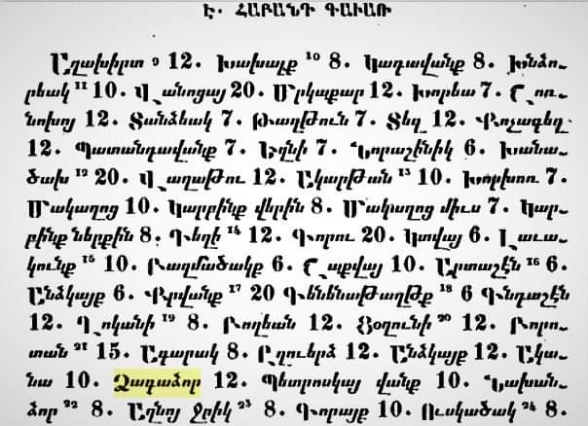 Է. ՀԱԲԱՆԴ ԳԱՒԱՌ
Աղախիրտ ⁹ 12. Խախալք ¹⁰ 8. Կադավանք 8. Խնձո-
րեակ ¹¹ 10. Վանոցայ 20. Մրկաքար 12. Խորեա 7. Հոռ-
նոխոյ 12. Տանձեակ 7. Թաղթուն 7. Տեղ 12. Քոչագեղ.
12. Պատանդավանք 7. Եղնի 7. Նորաշինիկ 6. Խանա-
ծախ ¹² 20. Վաղաթու 12. Ակարթան ¹³ 10. Խորխոռ 7.
Մակաղոց 10. Կարբինք վերին 8. Մակաղոց միւս 7. Կար-
բինք ներքին 8. Գեղի ¹⁴ 12. Գորու 20. Կովայ 6. Լաւա-
կունք ¹⁵ 10. Բազմածակք 6. Հաքվայ 10. Արտաշէն ¹⁶ 6.
Անձկայք 6. Քրվանք ¹⁷ 20 Գենենաթաղթք ¹⁸ 6 Գնդաշէն
12. Դոկանի ¹⁹ 8. Բողեան 12. Ձօղունի ²⁰ 12. Բորո-
տան ²¹ 15. Ագարակ 8. Ըղուերձ 12. Անձկայք 12. Ակա-
նա 10. Զագաձոր 12. Պետրոսկայ վանք 10. Նախան-
ձոր ²² 8. Աղնոյ Ջրիկ ²³ 8. Գորայք 10. Ոսկածակ ²⁴ 8.